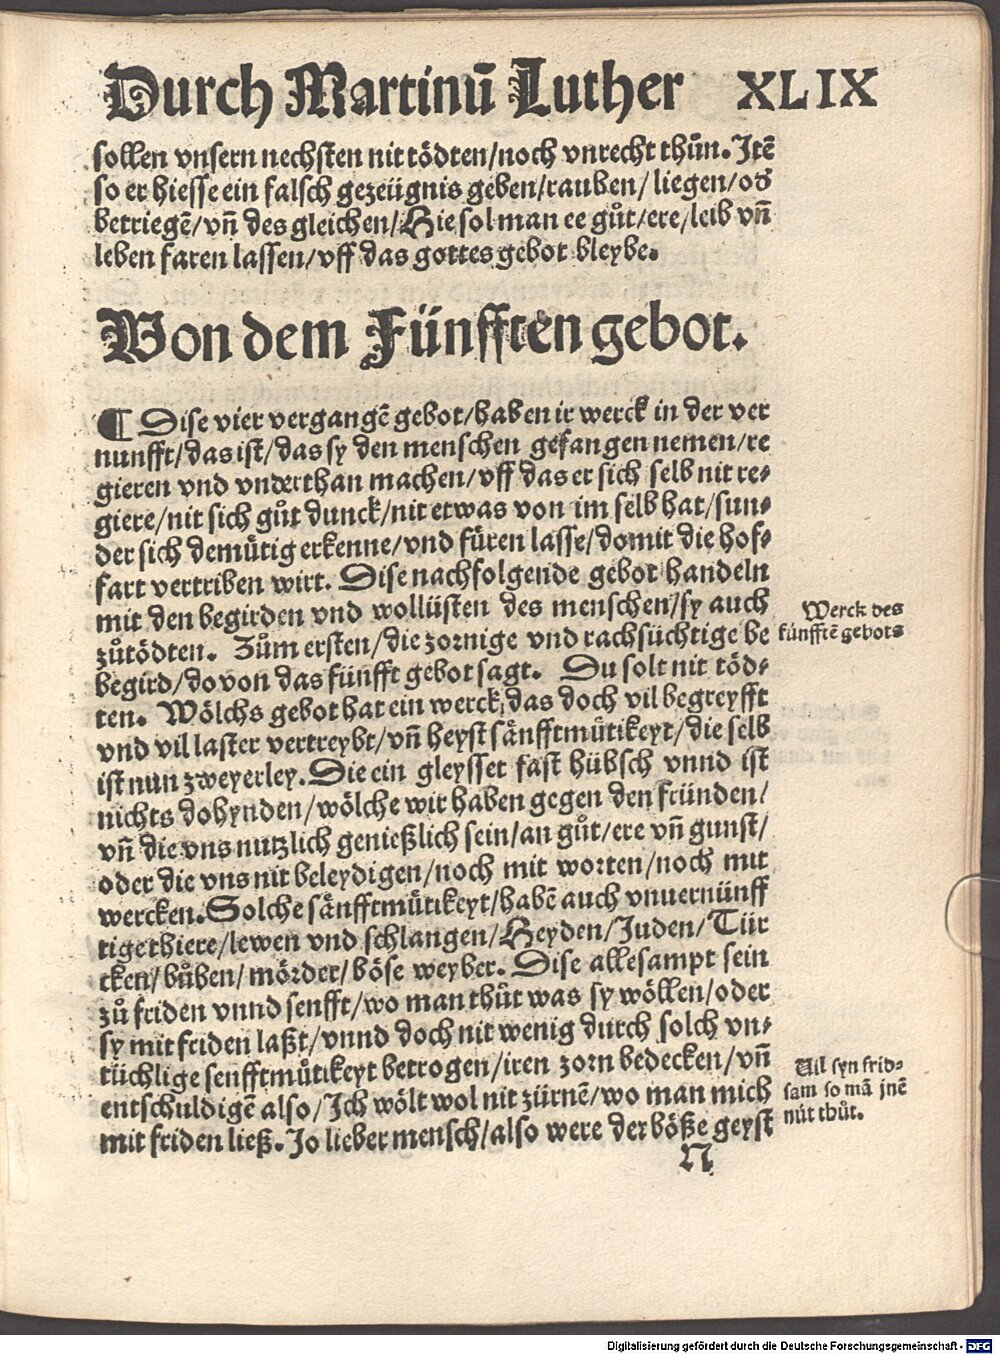 Durch Martinū Luther XLIX
sollen vnsern nechsten nit tödten/noch vnrecht thůn. Itē
so er hiesse ein falsch gezeügnis geben/rauben/liegen/od
betriegē/vñ des gleichen/Hie sol man ee gůt/ere/leib vñ
leben faren lassen/vff das gottes gebot bleybe.
Von dem Fünfften gebot.
¶ Dise vier vergangē gebot/haben ir werck in der ver
nunfft/das ist/das sy den menschen gefangen nemen/re
gieren vnd vnderthan machen/vff das er sich selb nit re⸗
giere/nit sich gůt dunck/nit etwas von im selb hat/sun⸗
der sich demütig erkenne/vnd füren lasse/domit die hof⸗
fart vertriben wirt. Dise nachfolgende gebot handeln
mit den begirden vnd wollüsten des menschen/sy auch
zůtödten. Zům ersten/die zornige vnd rachsüchtige be
begird/do von das fünfft gebot sagt. Du solt nit töd⸗
ten. Wölchs gebot hat ein werck/das doch vil begreyfft
vnd vil laster vertreybt/vñ heyst sånfftmütikeyt/die selb
ist nun zweyerley. Die ein gleysset fast hübsch vnnd ist
nichts dohynden/wölche wir haben gegen den fründen/
vñ die vns nutzlich genießlich sein/an gůt/ere vñ gunst/
oder die vns nit beleydigen/noch mit worten/noch mit
wercken. Solche sånfftmütikeyt/habē auch vnuernünff
tige thiere/lewen vnd schlangen/Heyden/Juden/Tür
cken/bůben/mörder/böse weyber. Dise allesampt sein
zů friden vnnd senfft/wo man thůt was sy wöllen/oder
sy mit friden laßt/vnnd doch nit wenig durch solch vn⸗
tüchlige senfftmůtikeyt betrogen/iren zorn bedecken/vñ
entschuldigē also/Ich wölt wol nit zürnē/wo man mich
mit friden ließ. Jo lieber mensch/also were der böße geyst
N
Werck des
fünfftē gebots
Vil syn frid⸗
sam so mā jnē
nüt thůt.
Digitalisierung gefördert durch die Deutsche Forschungsgemeinschaft - DFG